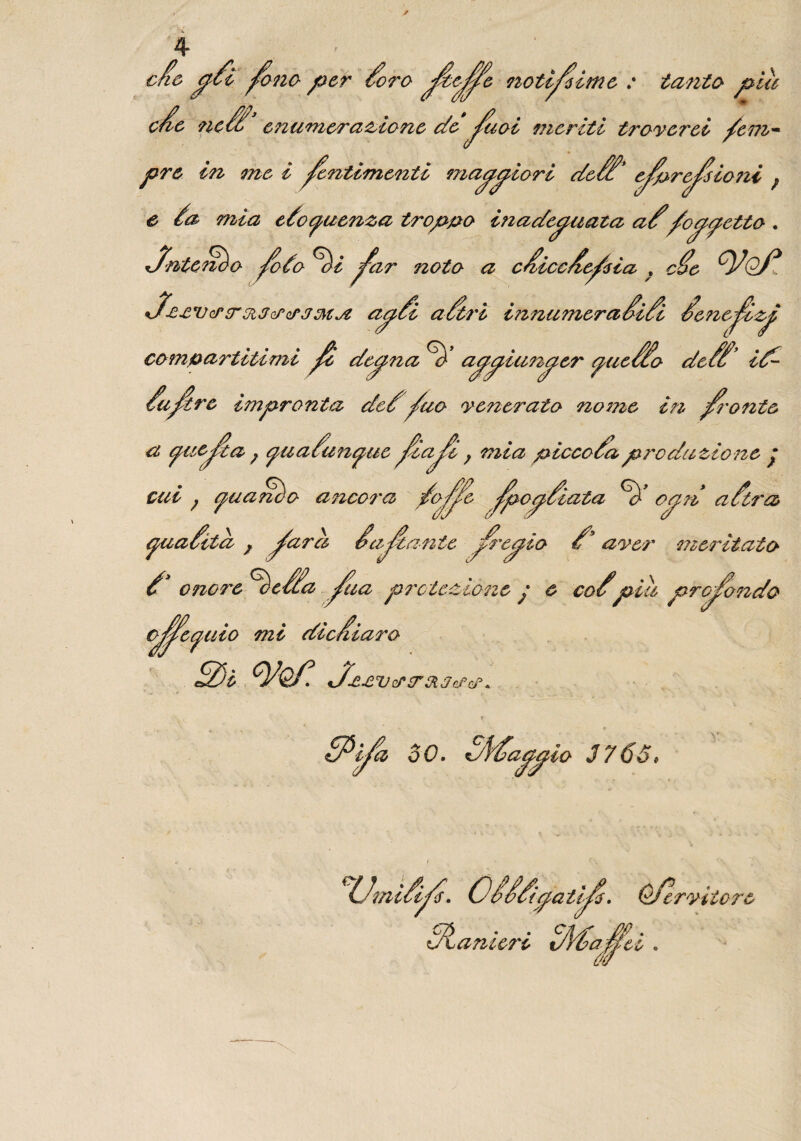 4
che gli ſono per loro ſteſſe notiſsime : tanto più
che nell' enumerazione de' ſuoi meriti troverei ſem-
pre in me i ſentimenti maggiori dell' eſpreſsioni ,
e la mia eloquenza troppo inadeguata al ſoggetto .
Intendo ſolo di far noto a chiccheſsia , che VS.
ILLUSTRISSIMA agli altri innumerabili benefizj
compartitimi ſi degna d' aggiunger quello dell' il-
luſtre impronta del ſuo venerato nome in fronte
a queſta , qualunque ſiaſi , mia piccola produzione ;
cui , quando ancora foſſe ſpogliata d' ogn' altra
qualità , ſarà baſtante fregio l' aver meritato
l' onore della ſua protezione ; e col più profondo
oſſequio mi dichiaro
Di VS. ILLUSTRISS.
Piſa 30. Maggio 1765.
Umiliſs. Obbligatiſs. Servitore
Ranieri Maffei .